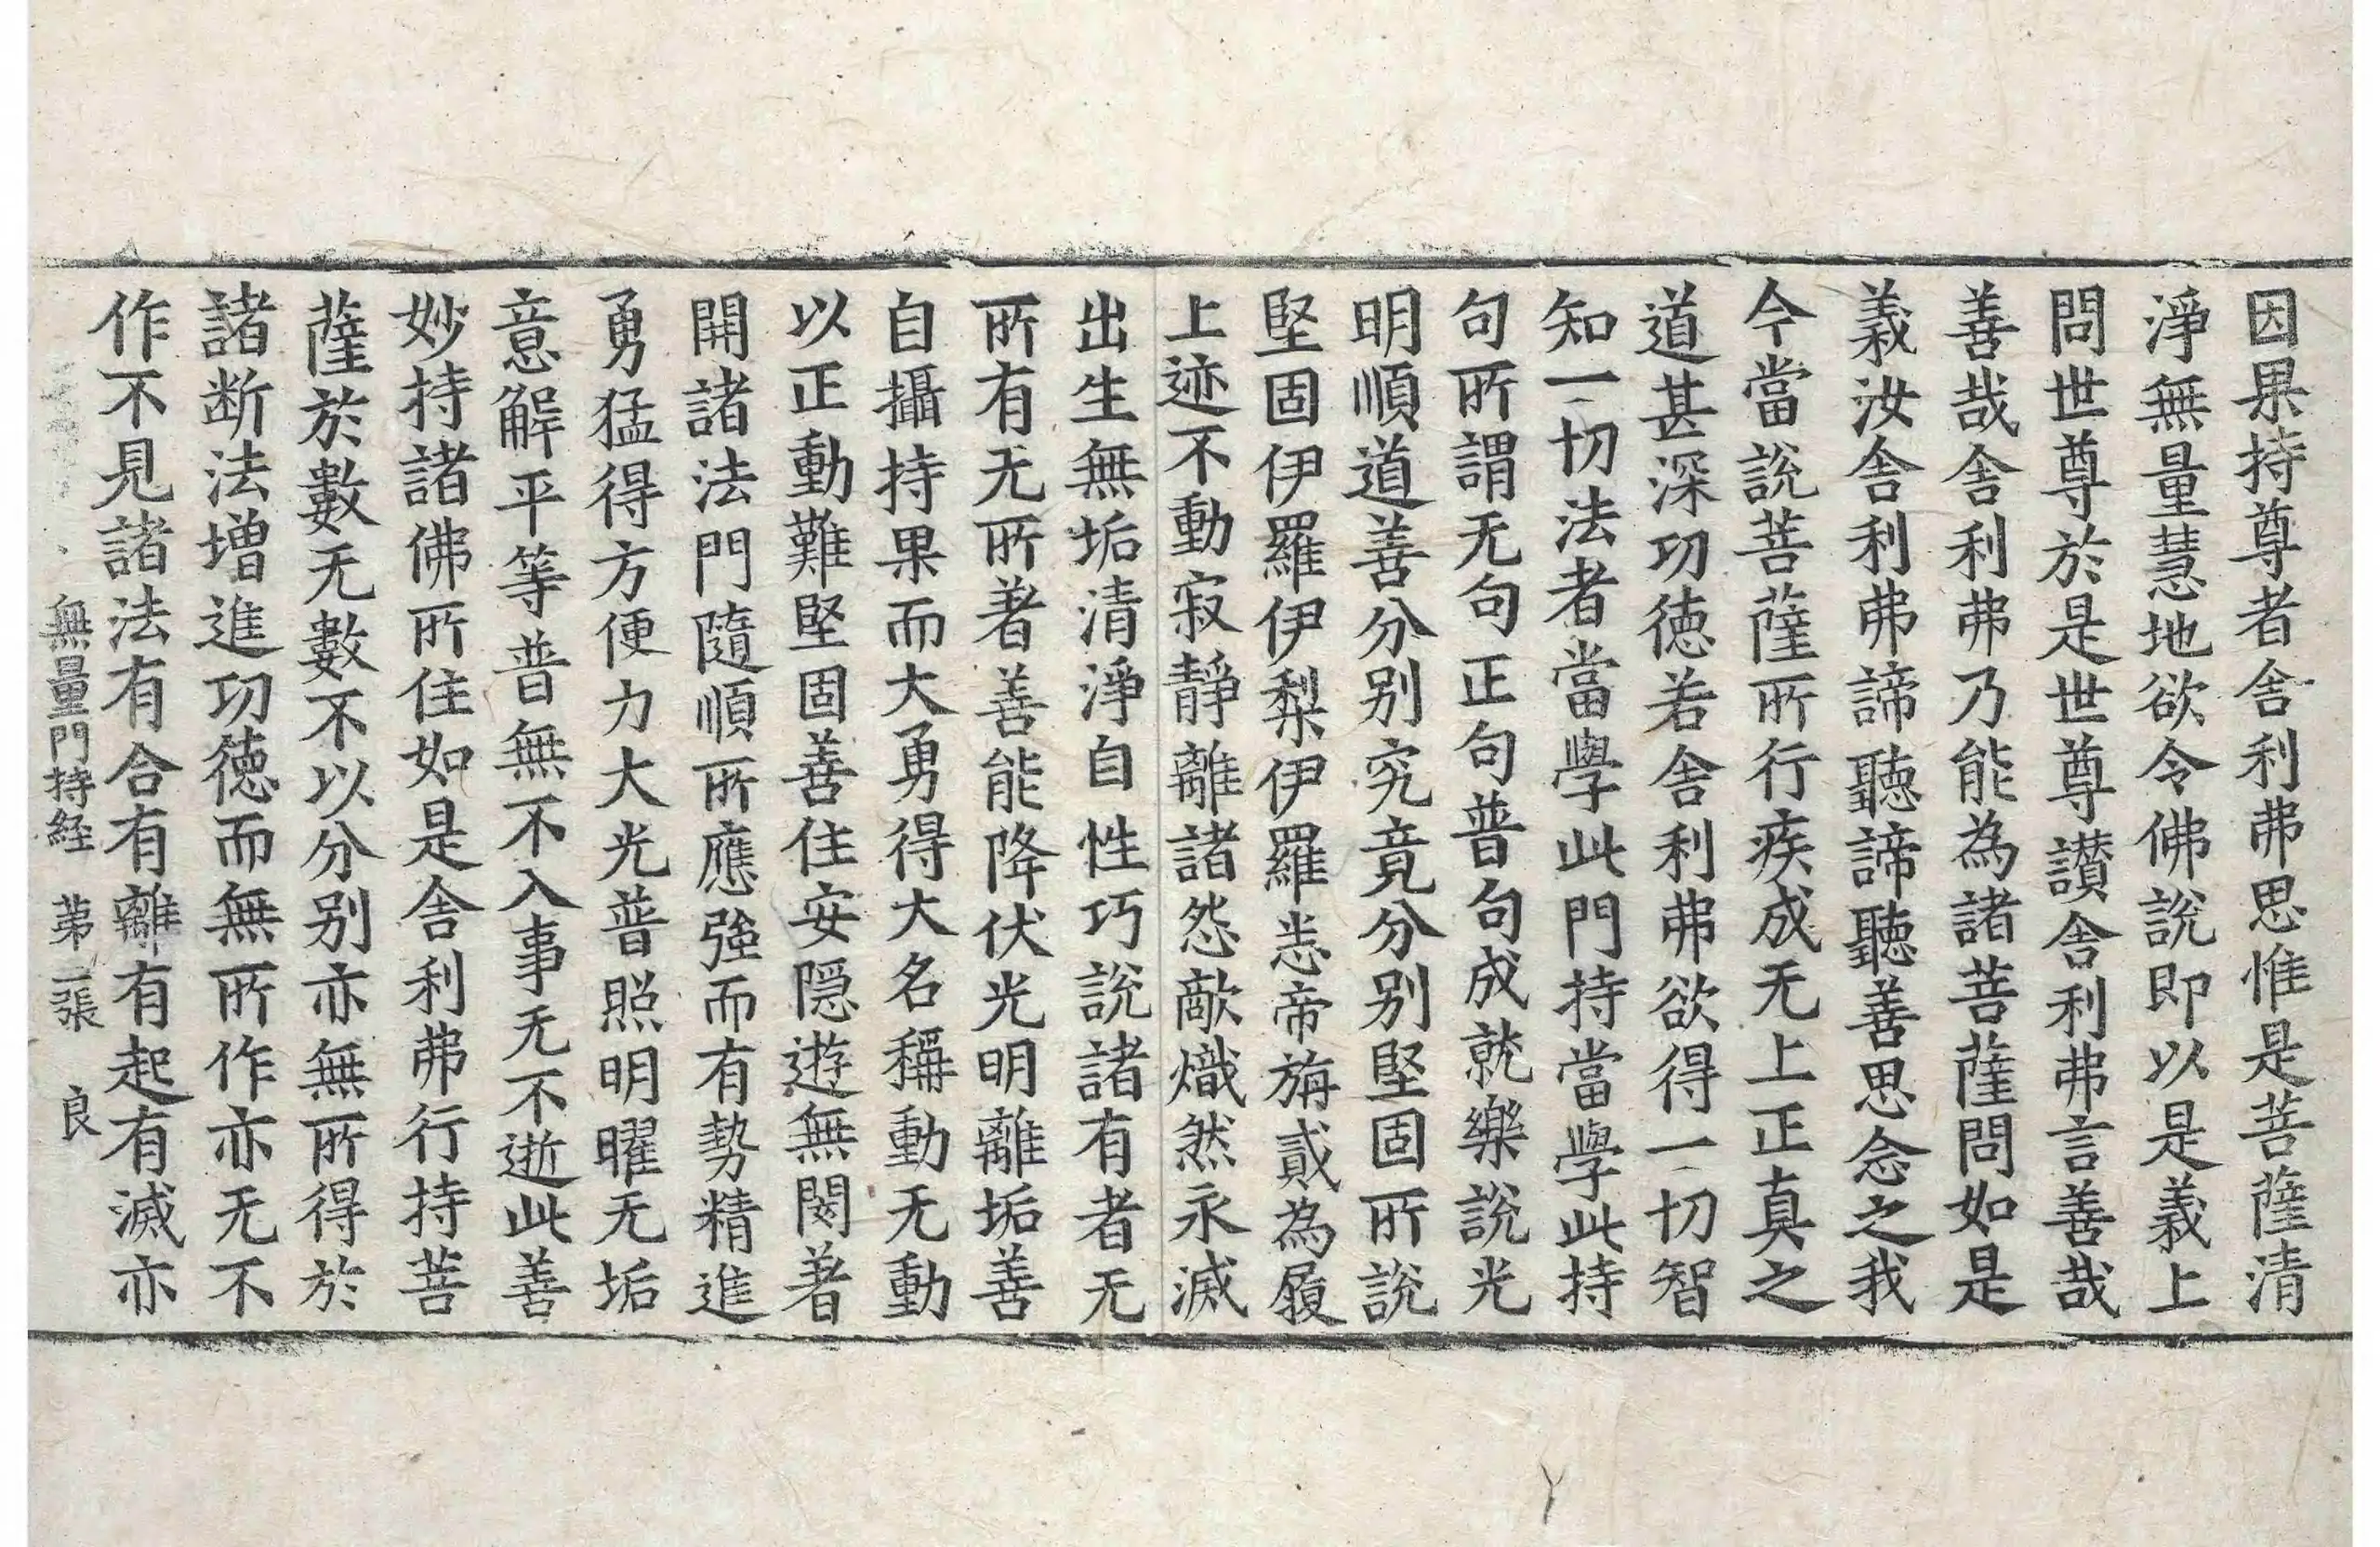 因果持尊者舍利弗思惟是菩薩清
淨無量慧地欲令佛說即以是義上
問世尊於是世尊讃舍利弗言善哉
善哉舍利弗乃能為諸菩薩問如是
義汝舍利弗諦聽諦聽善思念之我
今當說菩薩所行疾成无上正真之
道甚深功徳若舍利弗欲得一切智
知一切法者當學此門持當學此持
句所謂无句正句普句成就樂說光
明順道善分别究竟分别堅固所說
堅固伊羅伊梨伊羅恙帝旃貳為履
上迹不動寂靜離諸怨敵熾然永滅
出生無垢清淨自性巧說諸有者无
所有无所著善能降伏光明離垢善
自攝持果而大勇得大名稱動无動
以正動難堅固善住安隠遊無閡著
開諸法門隨順所應強而有勢精進
勇猛得方便力大光普照明曜无垢
意解平等普無不入事无不逝此善
妙持諸佛所住如是舍利弗行持菩
薩於數无數不以分别亦無所得於
諸断法增進功徳而無所作亦无不
作不見諸法有合有離有起有滅亦
無量門持経 苐二張 良